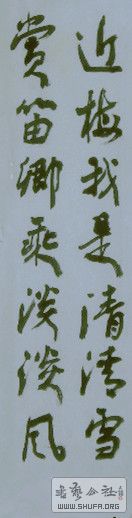 近梅我是清清雪
赏笛卿乘淡淡风
书艺公社
WWW.SHUFA.ORG